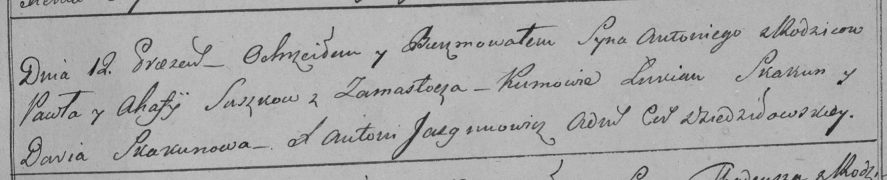 Dnia 12. Ochrzciłem y Bierzmowałem Syna Antoniego z Rodzicow
Pawła y Ahafij Suszkow z Zamastocza – Kumowie Lucian Skakun y
Daria Skakunowa – X Antoni Jazgunowicz Cer Dziedziłowskey.